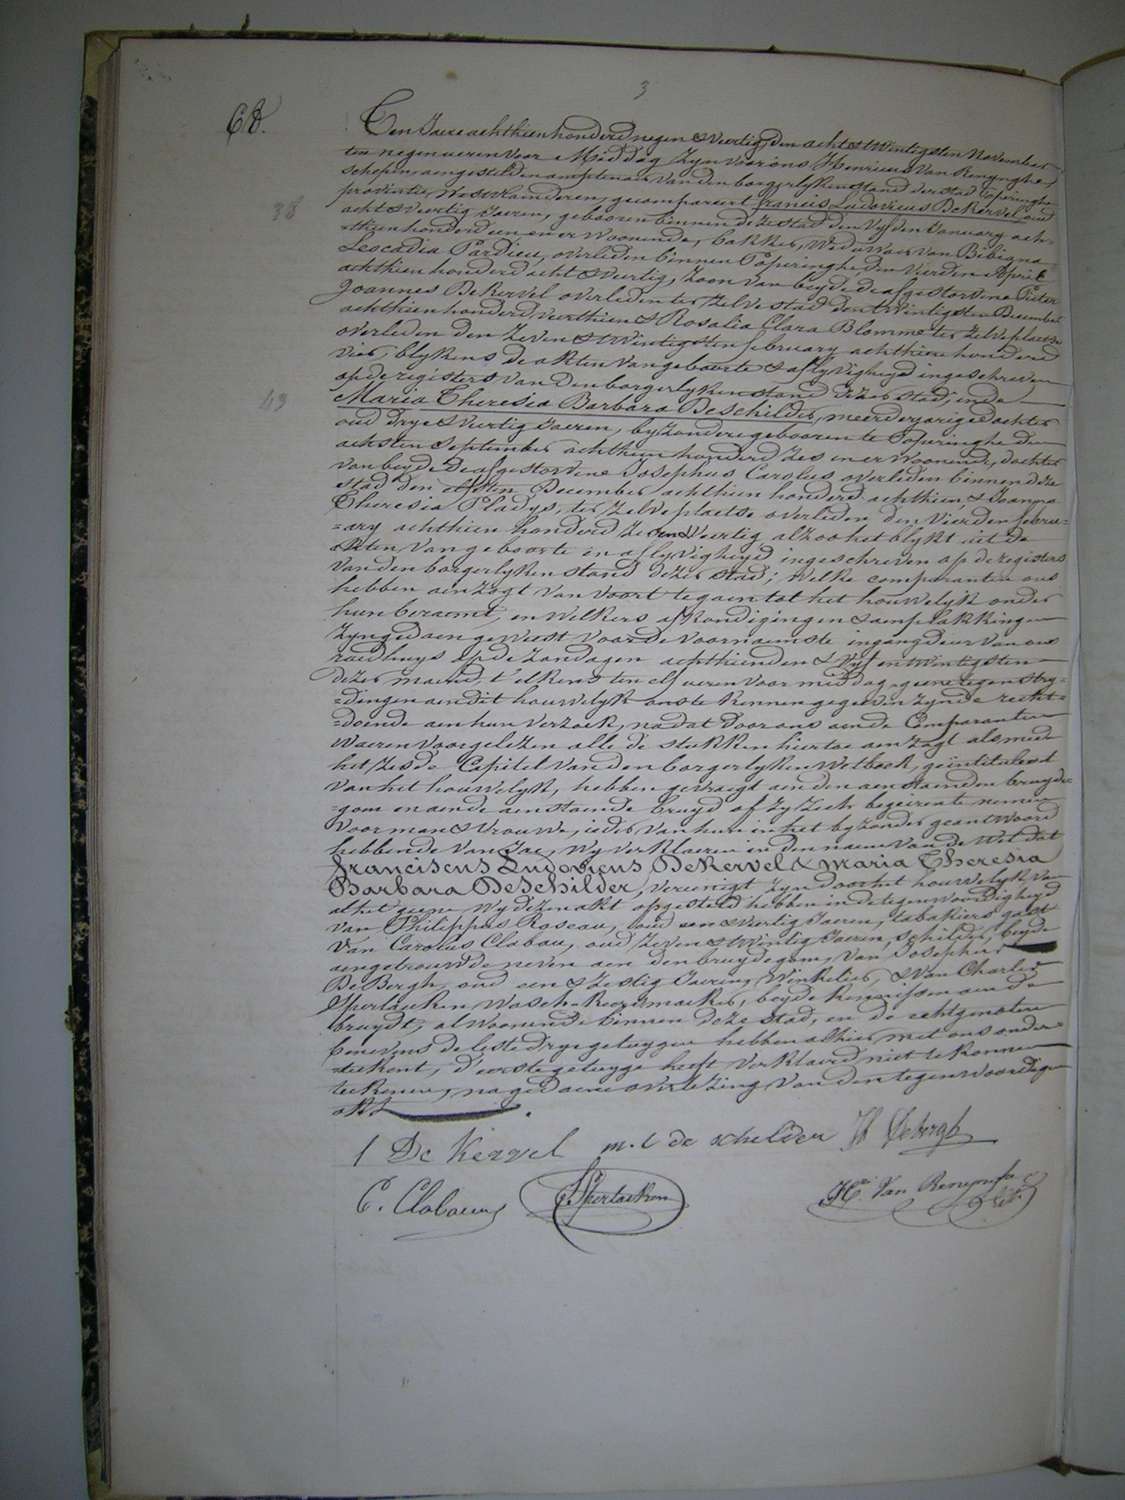 3
68.
Ten Jaere achthien honderd negen & veertig, den acht & twintigsten November
ten negen ueren voor Middag, zyn voor ons Henricus Van Renynghe,
schepen, aengestelden amptenaer van den borgerlyken stand der stad Poperinghe
provintie Westvlaenderen, gecompareert francis Ludovicus De Kervel oud
38
acht & veertig Jaeren, gebooren binnen deze stad den vyfden January ach-
-thien honderd een en er woonende, bakker, Weduwaer van Bibiana
Leocadia Pardieu, overleden binnen Poperinghe, den vierden April
achthien honderd acht & veertig, zoon van beyde de afgestorvene Pieter
Joannes De Kervel overleden ter zelve stad den twintigsten December
achthien honderd veerthien & Rosalia Clara Blomme ter zelve plaetse
overleden den zeven & twintigsten february achthien honderd
vier, blykens de akten van geboorte & aflyvigheyd ingeschreven
op de registers van den borgerlyken stand dezer stad; ende
43
Maria Theresia Barbara De Schilder, meerderjarige dochter
oud drye & veertig Jaeren, byzondere gebooren te Poperinghe den
achsten September achthien honderd zes en er woonende, dochter
van beyde de afgestorvene Josephus Carolus overleden binnen deze
stad den elfsten December achthien honderd achthien, & Joanna
Theresia Pladys, ter zelve plaetse overleden den vierden febru-
-ary achthien honderd zeven & veertig alzoo het blykt uit de
akten van geboorte en aflyvigheyd ingeschreven op de registers
van den borgerlyken stand dezer stad; Welke comparanten ons
hebben aenzogt van voort te gaen tot het houwelyk onder
hun beraemt, en welkers afkondigingen & aenplakkingen
zyn gedaen geweest voor de voornaemste ingangdeur van ons
raedhuys op de zondagen achthienden & vyf en twintigsten
dezer maend t'elkens ten elf ueren voor middag, geene tegenstry-
-dingen aen dit houwelyk ons te kennen gegeven zynde recht-
-doende aen hun verzoek, nadat door ons aen de Comparanten
waeren voorgelezen alle de stukken hiertoe aenzogt alsmede
het zesde Capitel van den borgerlyken Wetboek, geïntituleert
van het houwelyk, hebben gevraegt aen den aenstaenden bruyde-
-gom en aen de aenstaende bruyd of zy zich begeirente nemen
voor man & vrouwe, ieder van hun in het byzonder geantwoord
hebbende van Jae, wy verklaeren in den naem van de Wet dat
franciscus Ludovicus De Kervel & Maria Theresia
Barbara De Schilder, vereenigt zyn door het houwelyk van
al het geene wy dezen akt opgesteld hebben in de tegenwoordigheyd
van Philippus Roseau, oud een & veertig Jaeren, tabakier gast
van Carolus Clabau, oud zeven & twintig Jaeren, schilder, beyde
aengetrouwde neven aen den bruydegom, van Josephus
De Bergh, oud een & zestig Jaeren, Winkelier, & van Charles
Spertaeken, Wasch-keersmaeker, beyde kennissen aen de
bruydt, al woonende binnen deze stad, en de echtgenoten
benevens de leste drye getuygen hebben alhier met ons onder-
-teekent, d'eerste getuyge heeft verklaerd niet te konnen
teekenen, na gedaene overlezing van den tegenwoordigen
akt.
f De Kervel m. t de schilder Js Debergh
C. Clabauw C. Spertaeken Hri Van Renynghe